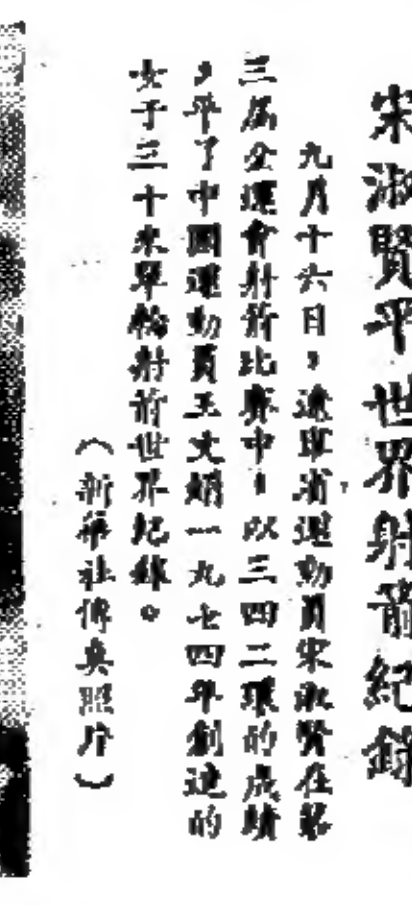 宋淑賢平世界射箭紀錄
九月十六日，遼寧省運動員宋淑賢在第
三屆全運會射箭比賽中，以三四二環的成績
，平了中國運動員王文娟一九七四年創造的
女子三十米單輪射箭世界紀錄。
（新華社傳真照片）